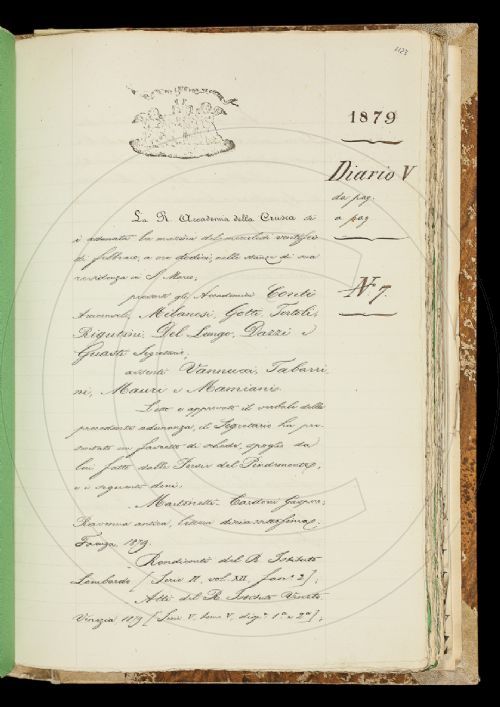 1123
1879
Diario V
da pag.
a pag
N 7.
La R. Accademia della Crusca si
è adunata la mattina del mercoledì ventisei
di febbraio, a ore dodici, nelle stanze di sua
residenza in S. Marco,
presenti gli Accademici Conti
Arciconsolo, Milanesi, Gotti, Tortoli,
Rigutini, Del Lungo, Dazzi e
Guasti Segretario;
assenti Vannucci, Tabarri
ni, Mauri e Mamiani.
Letto e approvato il verbale della
precedente adunanza, il Segretario ha pre-
sentato un fascetto di schede, spoglio da
lui fatto delle Poesie del Pindemonte,
e i seguenti doni:
Martinetti-Cardoni Gaspare,
Ravenna antica, lettera
Faenza, 1879.
Rendiconti del R. Istituto
Lombardo [Serie II, vol. XII, fasc. 2];
Atti del R. Istituto Veneto
Venezia, 1879 [Serie V, tomo V, disp. 1ª e 2ª];